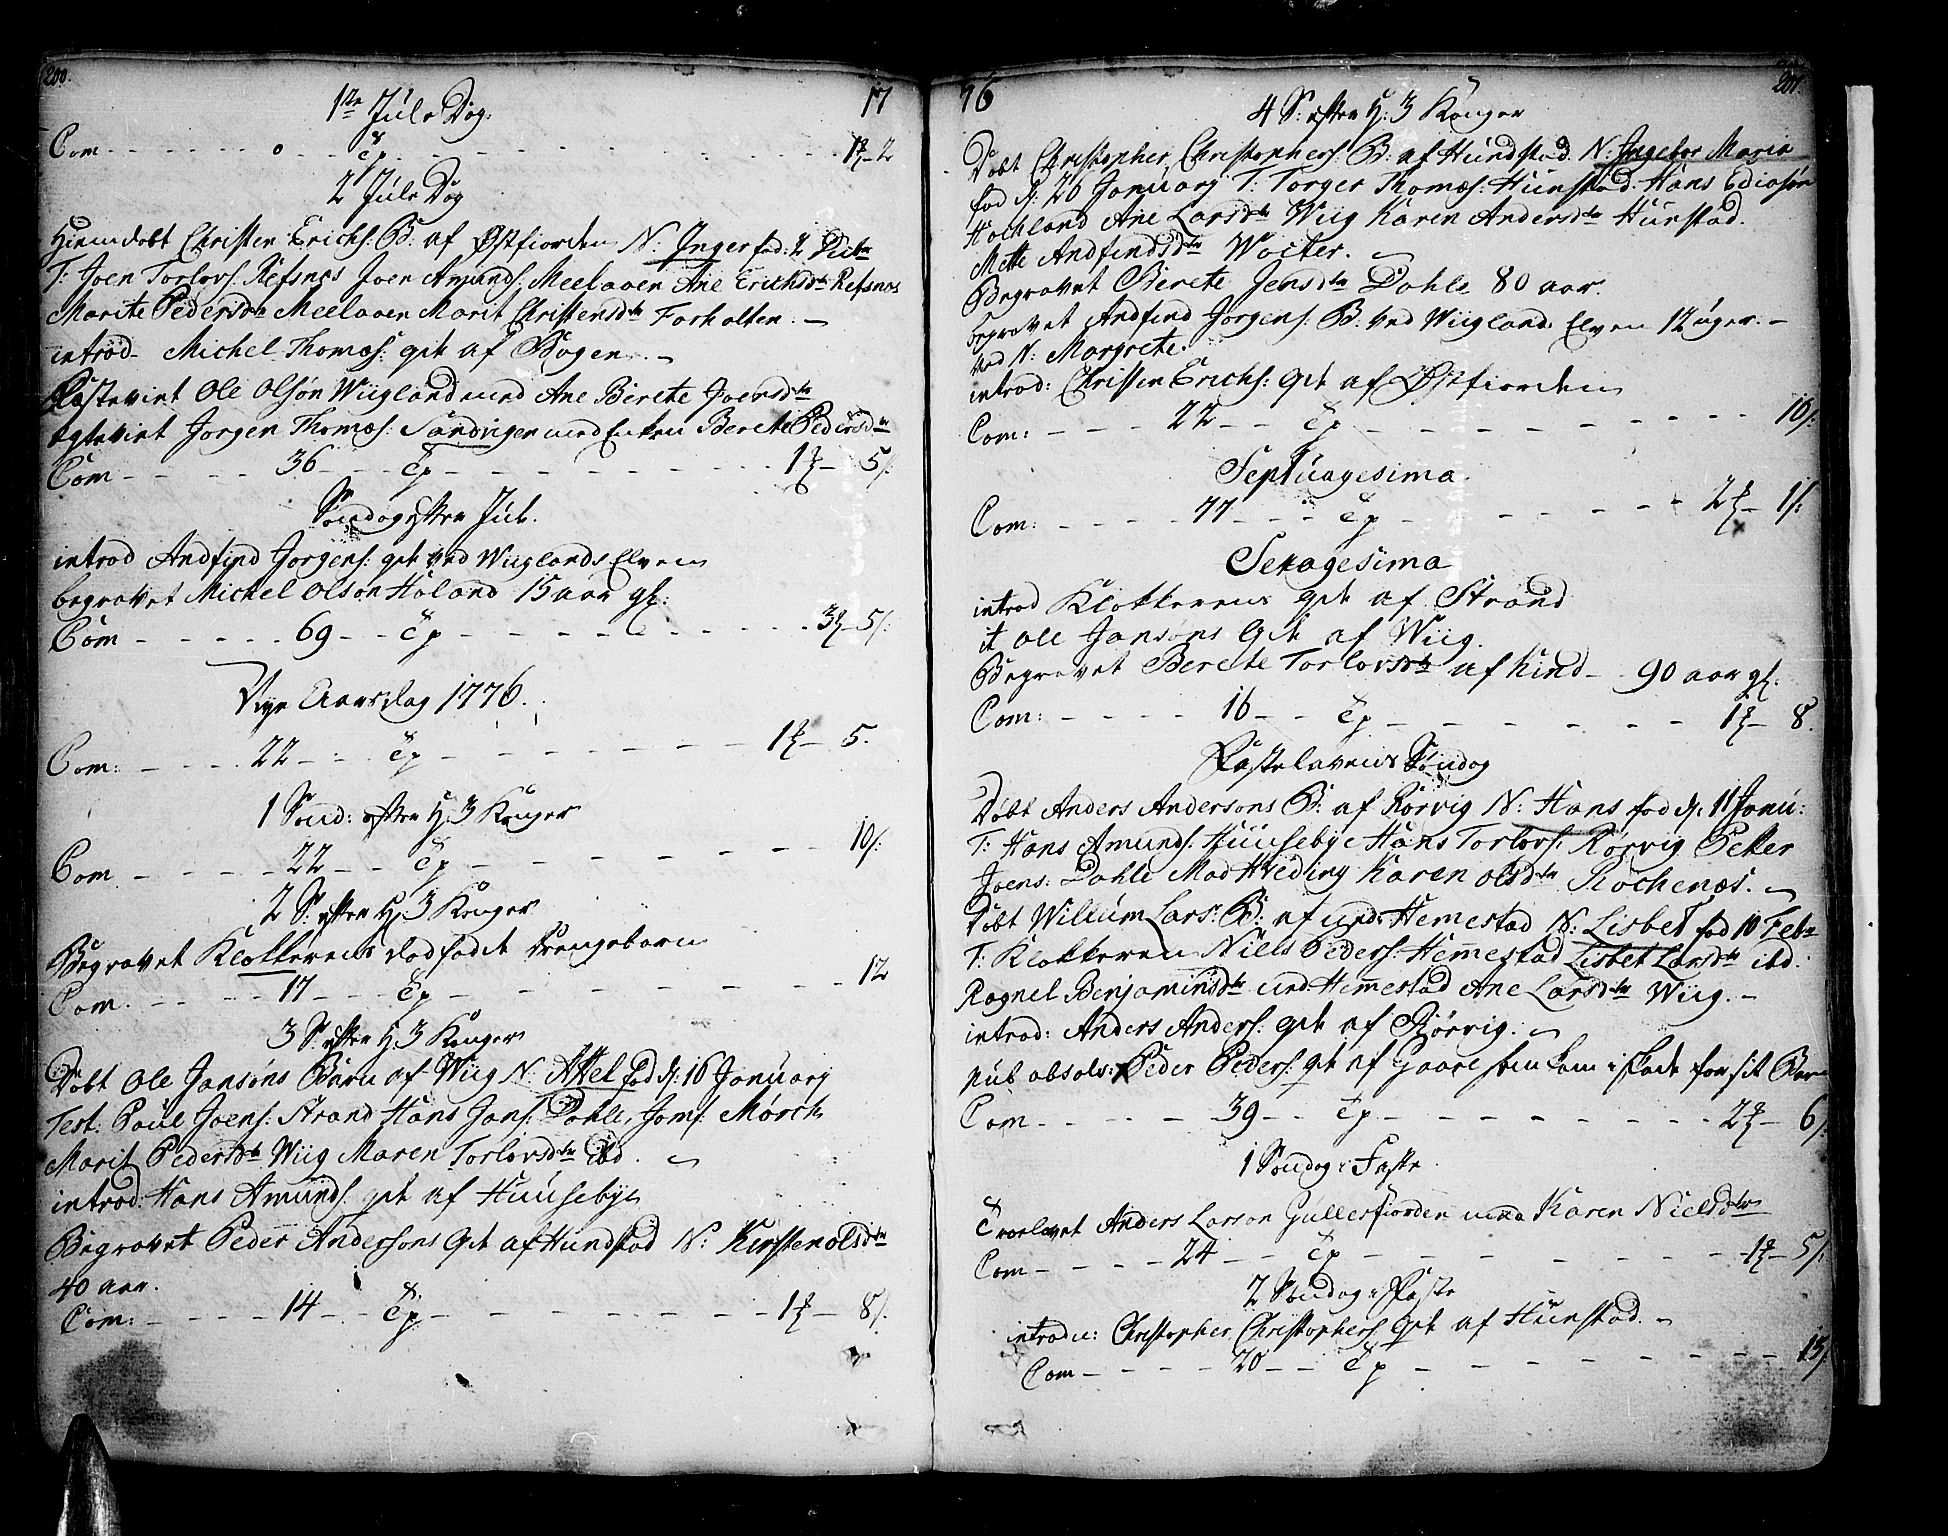 200.
17
1te Jule Dag.
Com - - - - - - 0 - - Cp - - - - - - - 1 - 2
2 Jule Dag
Hiemdøbt Christen Erichs: B: af Østfiorden N: Inger fød: 2 Decbr
T: Joen Torlovs. Refsnæs Joen Amunds. Meelaaen Ane Erichsdtr Refsnæs
Marite Pedersdtr Meelaaen Marit Christensdtr Forhalten. -
introd- Michel Thomæs: qvt af Bogen. -
Fæstevirt Ole Olsøn Wiigland med Ane Berete Joensdtr
egtevirt Jørgen Thomæs: Sandvigen med Enken Berete Pedersdtr
Com - - - - 36 - - Cp - - - - - - - 1 - 5/:
Søndag efter Jul.
introd Andfind Jørgens: qvt ved Wiiglands Elven
begravet Michel Olson Høland 15 aar gl:
Com - - - - - 69 - - Cp - - - - - - - 3 - 5/:
Nye Aarsdag 1776.
Com: - - - - 22 - - Cp - - - - - - - 1 - 5.
1 Sønd: efter H: 3 Konger
Com - - - - - 22 - - Cp - - - - - - - 10/:
2 S: efter H: 3 Konger
Begravet Klokkerens dødfødt drengebarn
Com. - - - - 17 - - - Cp - - - - - - - 12
3 S: efter H: 3 Konger
Døbt Ole Jansøns Barn af Wiig N: Axel fød d: 16 January
Test: Poul Joens: Strand Hans Jans: Dahle, Jomf: Mørch
Marit Pedersdtr Wiig Maren Torlovsdtr ibd. -
introd: Hans Amunds: qvt af Huusebye
Begravet Peder Andersons Qvt af Hundstad N: Kirsten Olsdtr
40 aar.
Com: - - - - 14 - - Cp - - - - - - - 1 - 8/:
76
201.
4 S: efter H: 3 Konger
Døbt Christopher Christophers: B: af Hundstad N: Ingebor Maria
fød d: 26 January T: Torger Thomæs: Hunstad Hans Ediasøn
Hochland Ane Larsdtr Wiig Karen Andersdtr Hunstad.
Mette Andfindsdtr Wocter. -
Begravet Berete Jensdtr Dahle 80 aar.
begravet Andfind Jørgens: B. ved Wiiglands Elven 12 uger. -
ved N: Margrete.
introd: Christen Erichs: Qvt af Østfiorden
Com: - - - - 22 - - Cp - - - - - - - 16/:
Septuagesima
Com: - - - - 77 - - - Cp - - - - - - - 2 - 1/:
Sexagesima
introd Klokkerens Qvt af Strand
it Ole Jansøns Qvt af Wiig.
Begravet Berete Torlovsdtr af Kind - 90 aar gl.
Com: - - - - 16 - - Cp - - - - - - - 1 - 8.
Fastelavens Søndag
Døbt Anders Andersons B: af Rørvig N: Hans fød d: 11 Janu:
T: Hans Amunds. Huusebye Hans Torlovs: Rørvig Petter
Joens: Dahle Mad Hveding Karen Olsdtr Kochenæs. -
Døbt Willum Lars: B: af und: Hemestad N: Lisbet fød 10 Febr
T: Klokkeren Niels Peders: Hemestad Lisbet Larsdtr ibd:
Ragnel Benjaminsdtr und: Hemestad Ane Larsdtr Wiig. -
introd: Anders Anders: qvt af Rørvig. -
pub absols: Peder Peders: qvt af Gaare som kom i skade for sit Barn
Com - - - - - 39 - - Cp - - - - - - - 2 - 6/:
1 Søndag i Faste.
Trolovet Anders Larson Gullesfiorden med Karen Nielsdtr
Com - - - - 24 - - Cp - - - - - - - 1 - 5/:
2 Søndag i Faste
introdu: Christopher Christophers: Qvt af Hunstad. -
Com - - - - 20 - - Cp - - - - - - - 15/: